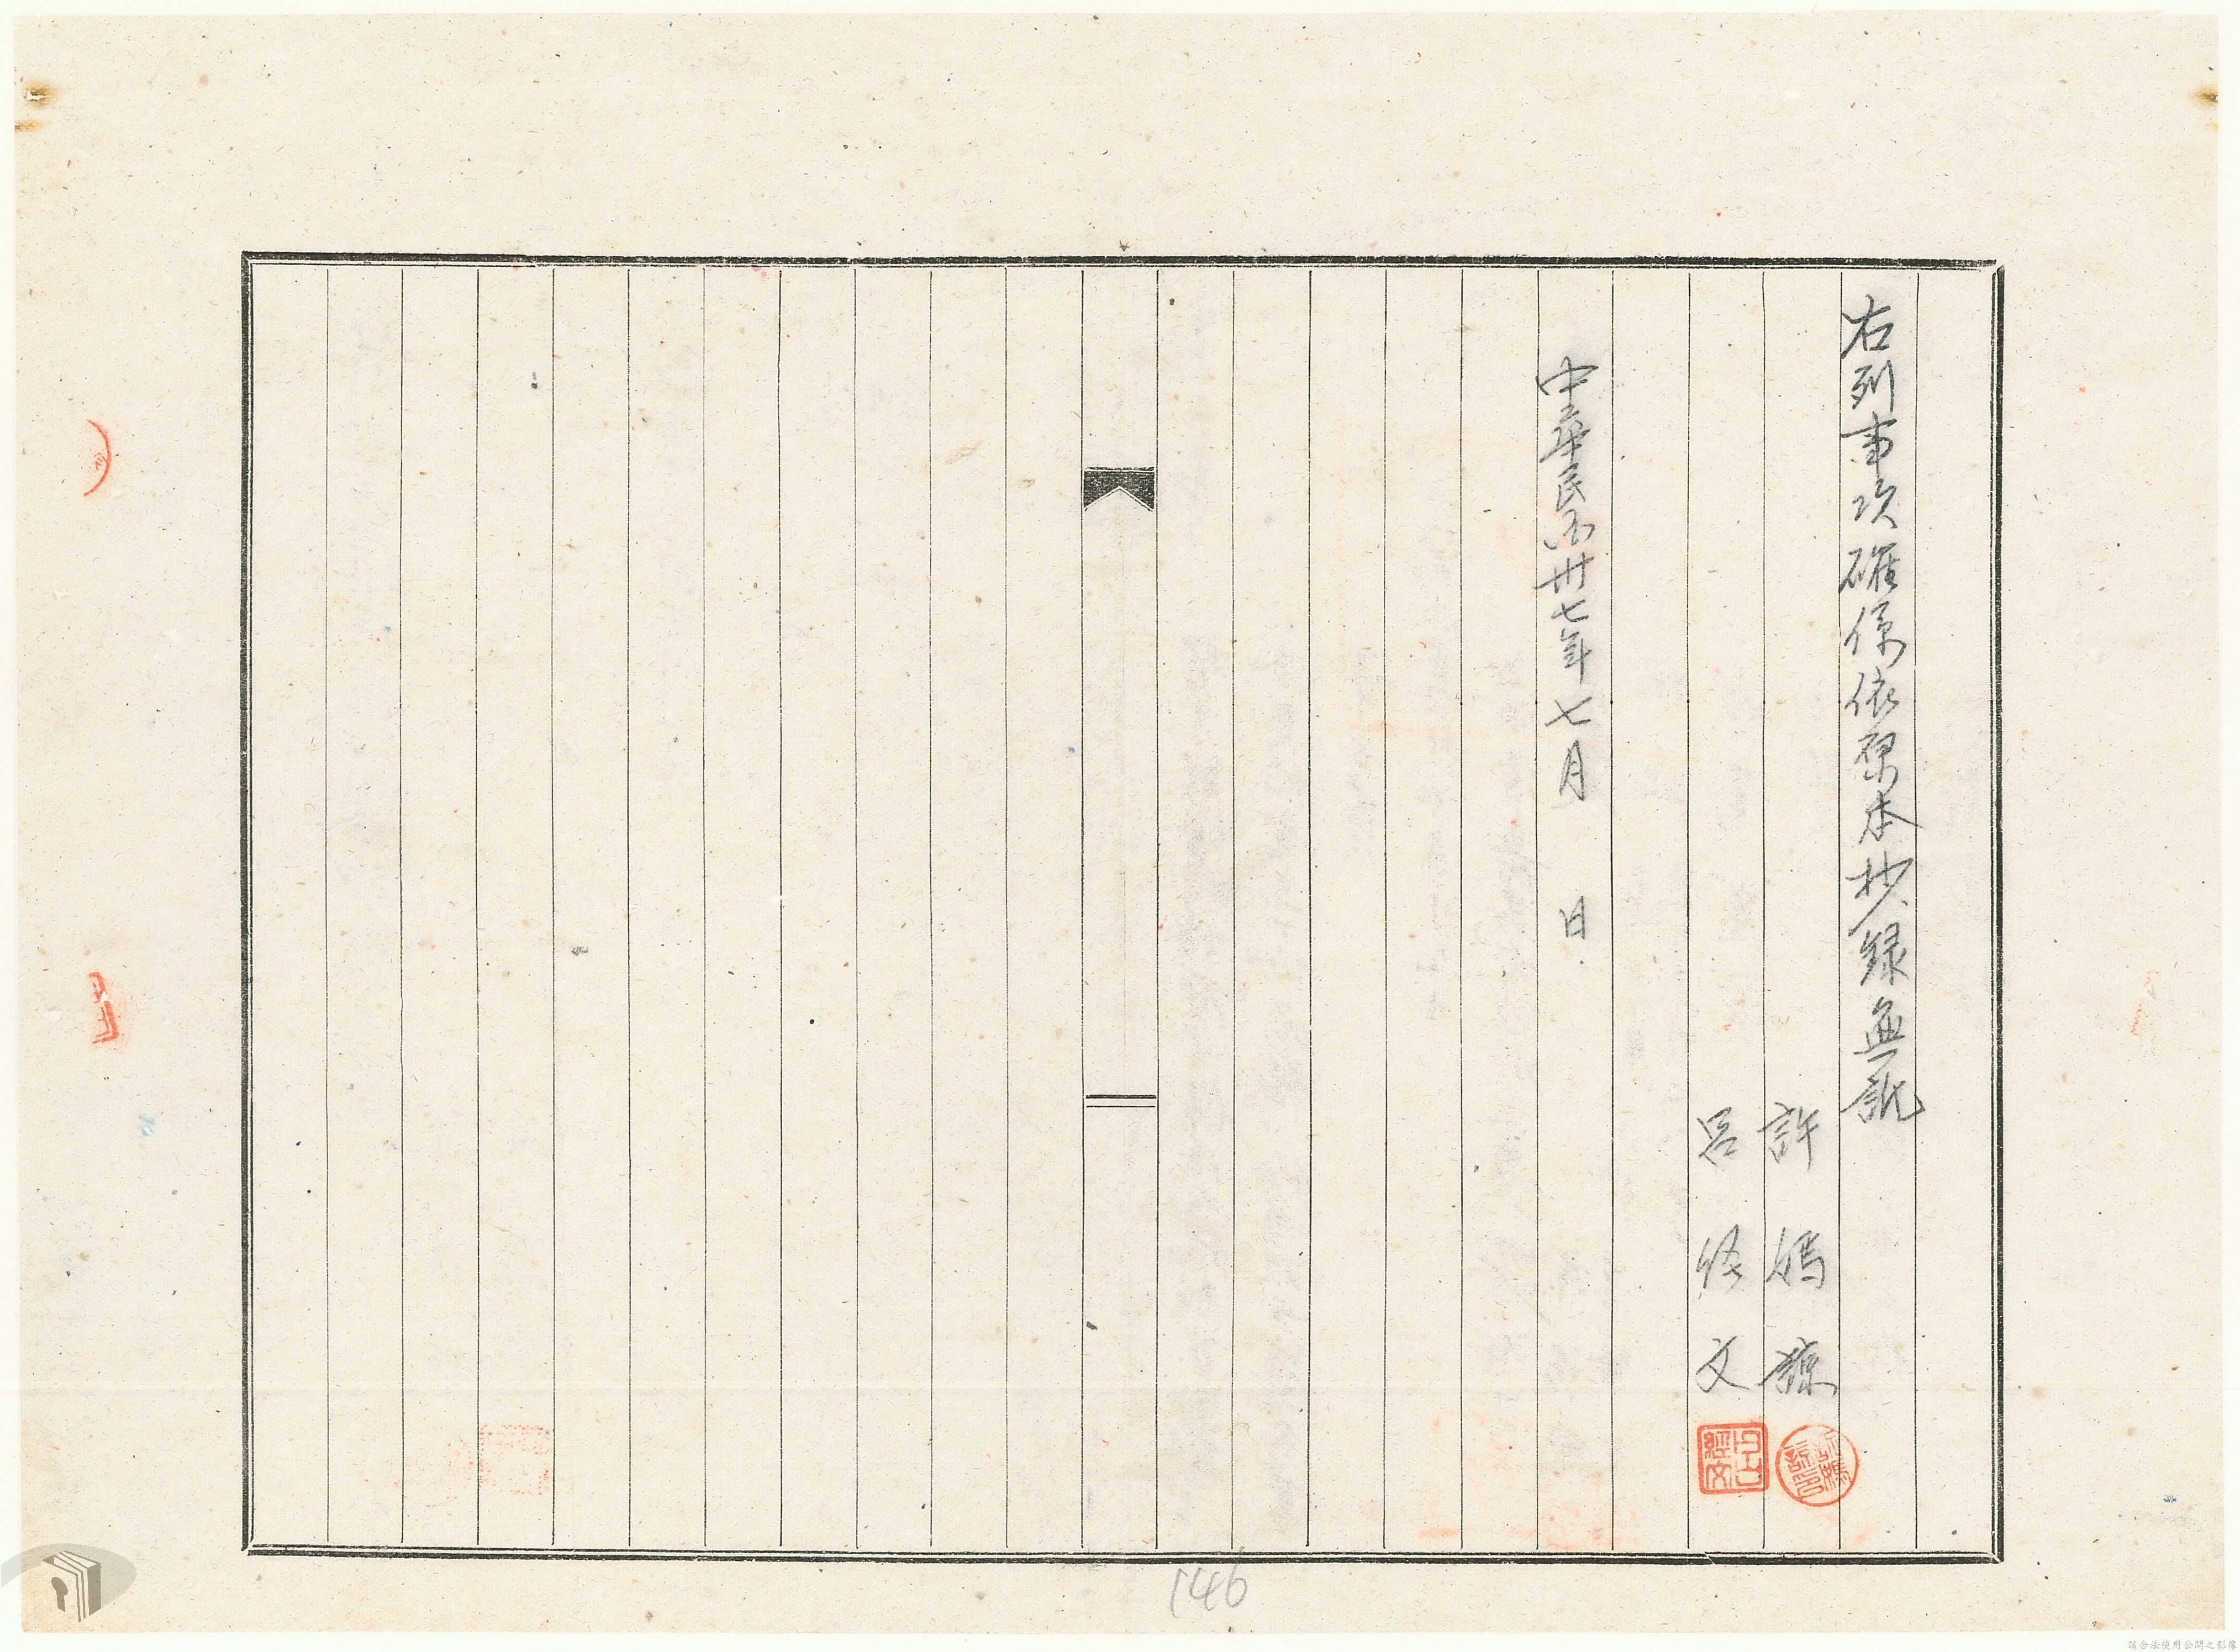 右列事項確係依原本抄錄無訛
許媽諒
呂經文
呂經文
中華民國卅七年七月　日
146
請合法使用公開之影像